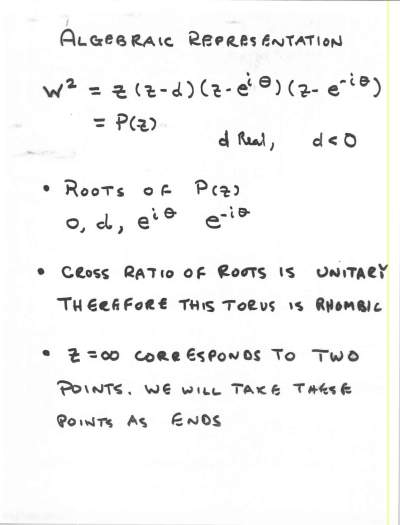 ALGEBRAIC REPRESENTATION
w² = z(z-d)(z-e^{iθ})(z-e^{-iθ})
= P(z)
d Real, d<0
• ROOTS OF P(z)
0, d, e^{iθ} e^{-iθ}
• CROSS RATIO OF ROOTS IS UNITARY
THEREFORE THIS TORUS IS RHOMBIC
• z=∞ CORRESPONDS TO TWO
POINTS. WE WILL TAKE THESE
POINTS AS ENDS